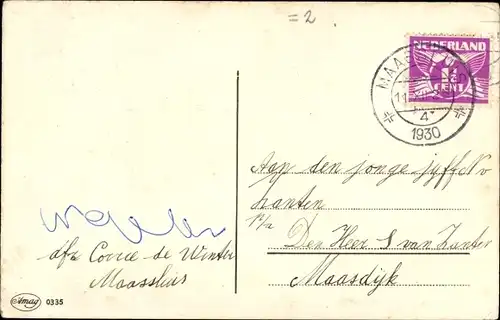 = 2
NEDERLAND
CENT
MAAS
4
1930
Aan den jonge juff N v
Zanten
p/a
Den Heer S van Zanten
Maasdijk
afz Corrie de Winter
Maassluis
Amag 0335